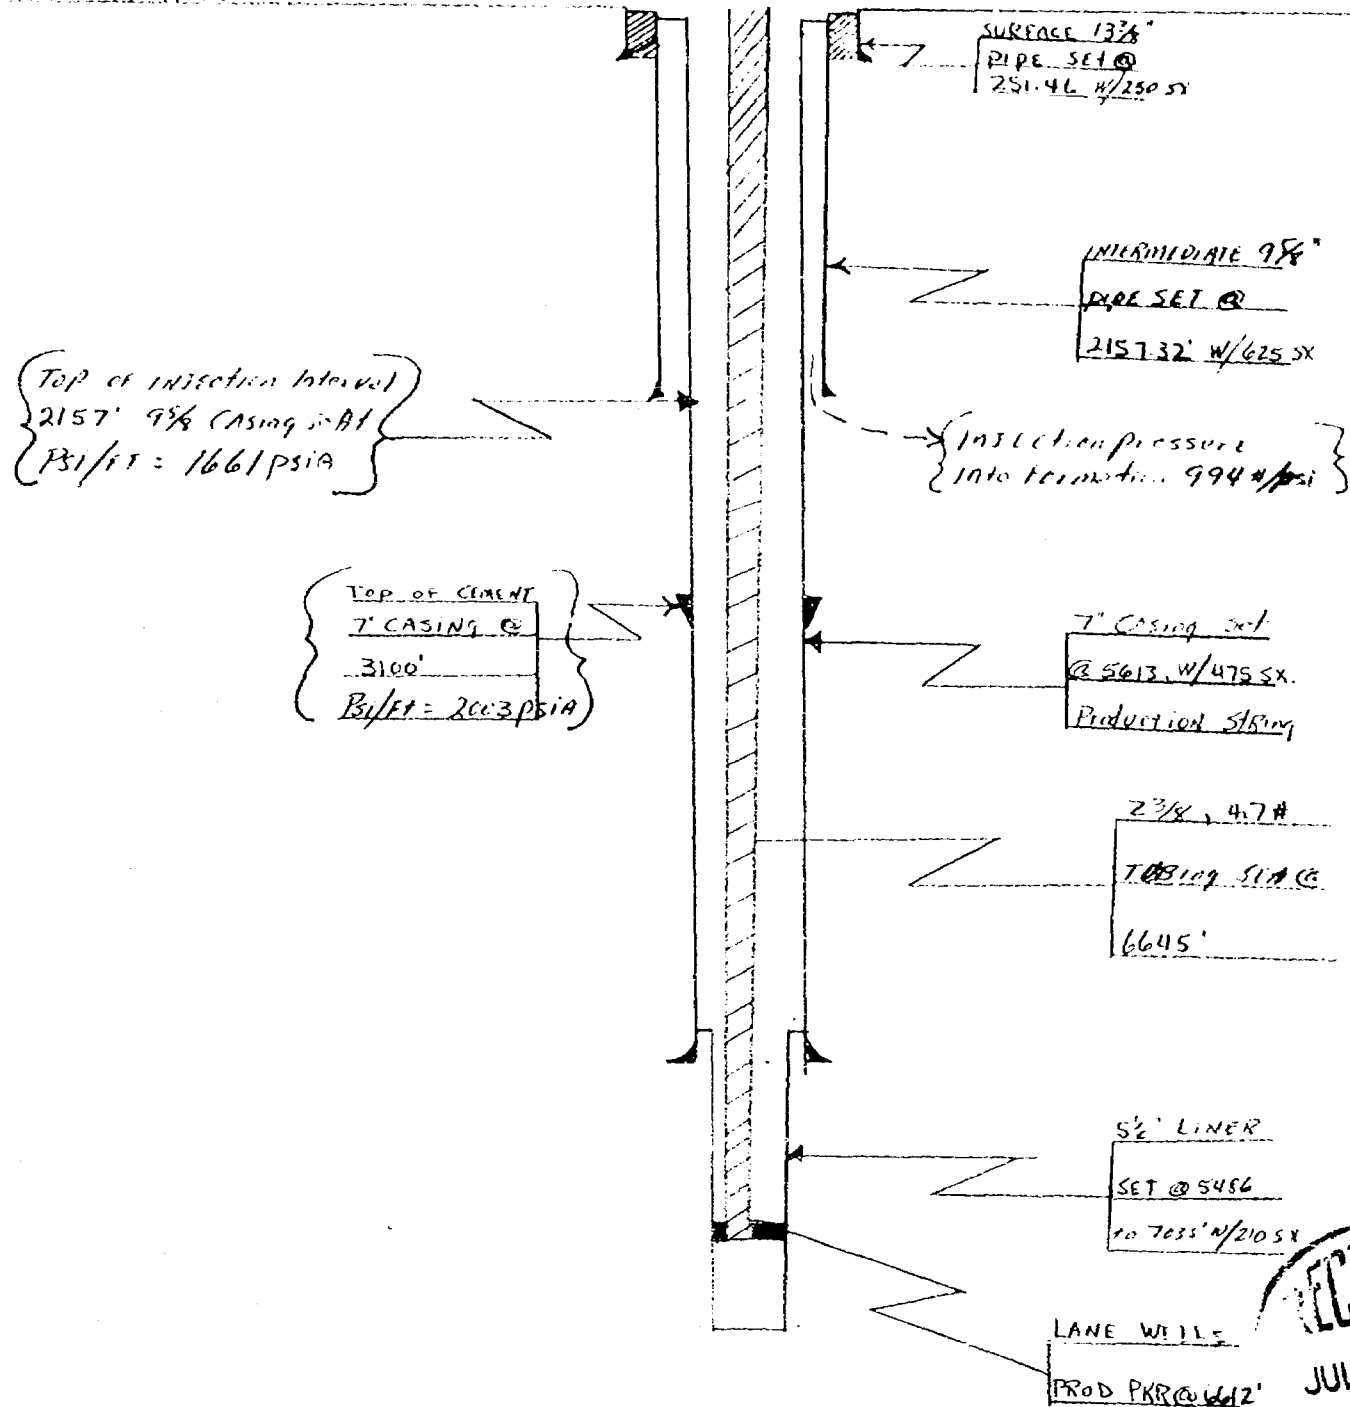 SURFACE 13 3/8"
PIPE SET @
251.46 W/250 SX
INTERMEDIATE 9 5/8"
PIPE SET @
2157.32' W/625 SX
Top of injection Interval
2157' 9 5/8 Casing is At
PSI/FT = 1661 psia
Injection pressure
Into Formation 994 #/psi
TOP OF CEMENT
7" CASING @
3100'
PSI/Ft = 2003 psia
7" Casing set
@ 5613. W/475 SX.
Production String
2 3/8, 4.7#
TUBing Set @
6645'
5 1/2" LINER
SET @ 5486
to 7035' W/210 SX
LANE WELLS
PROD PKR @ 6612'
JUL